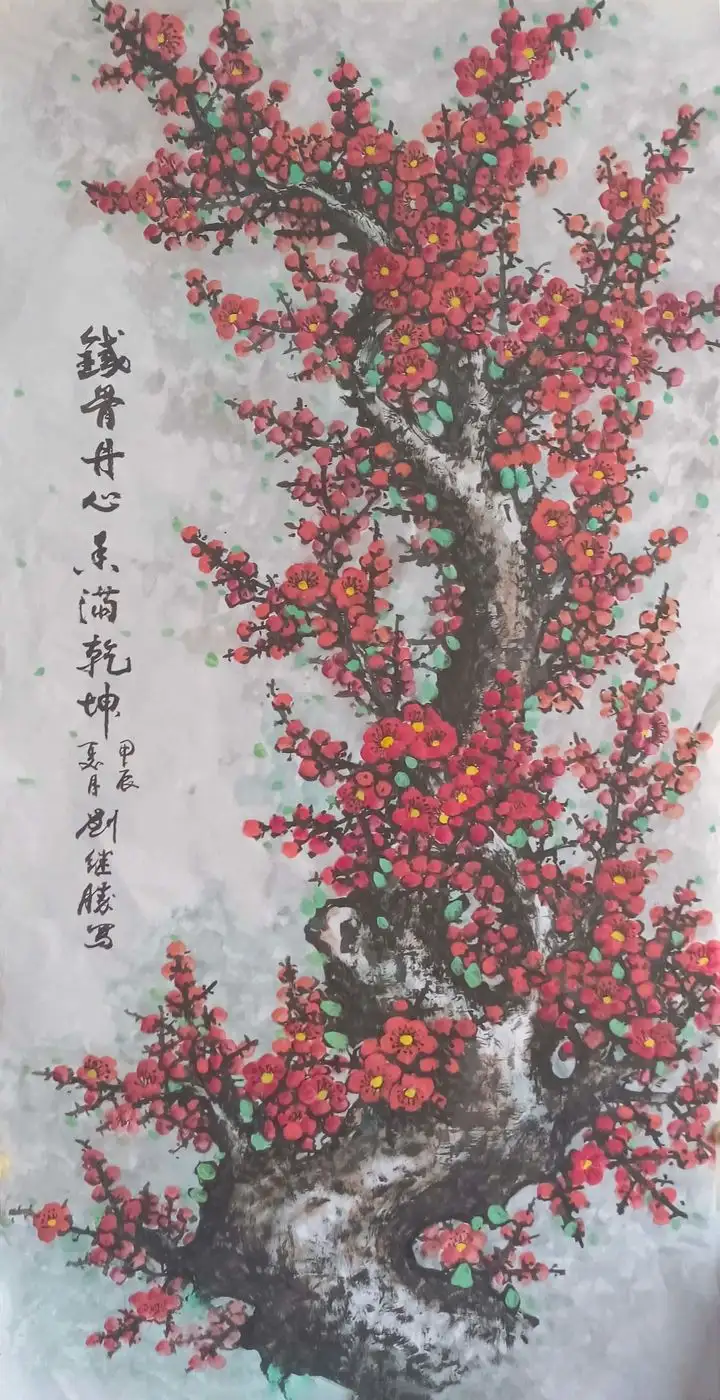 鐵骨丹心香滿乾坤
甲辰
夏月
劉継勝写